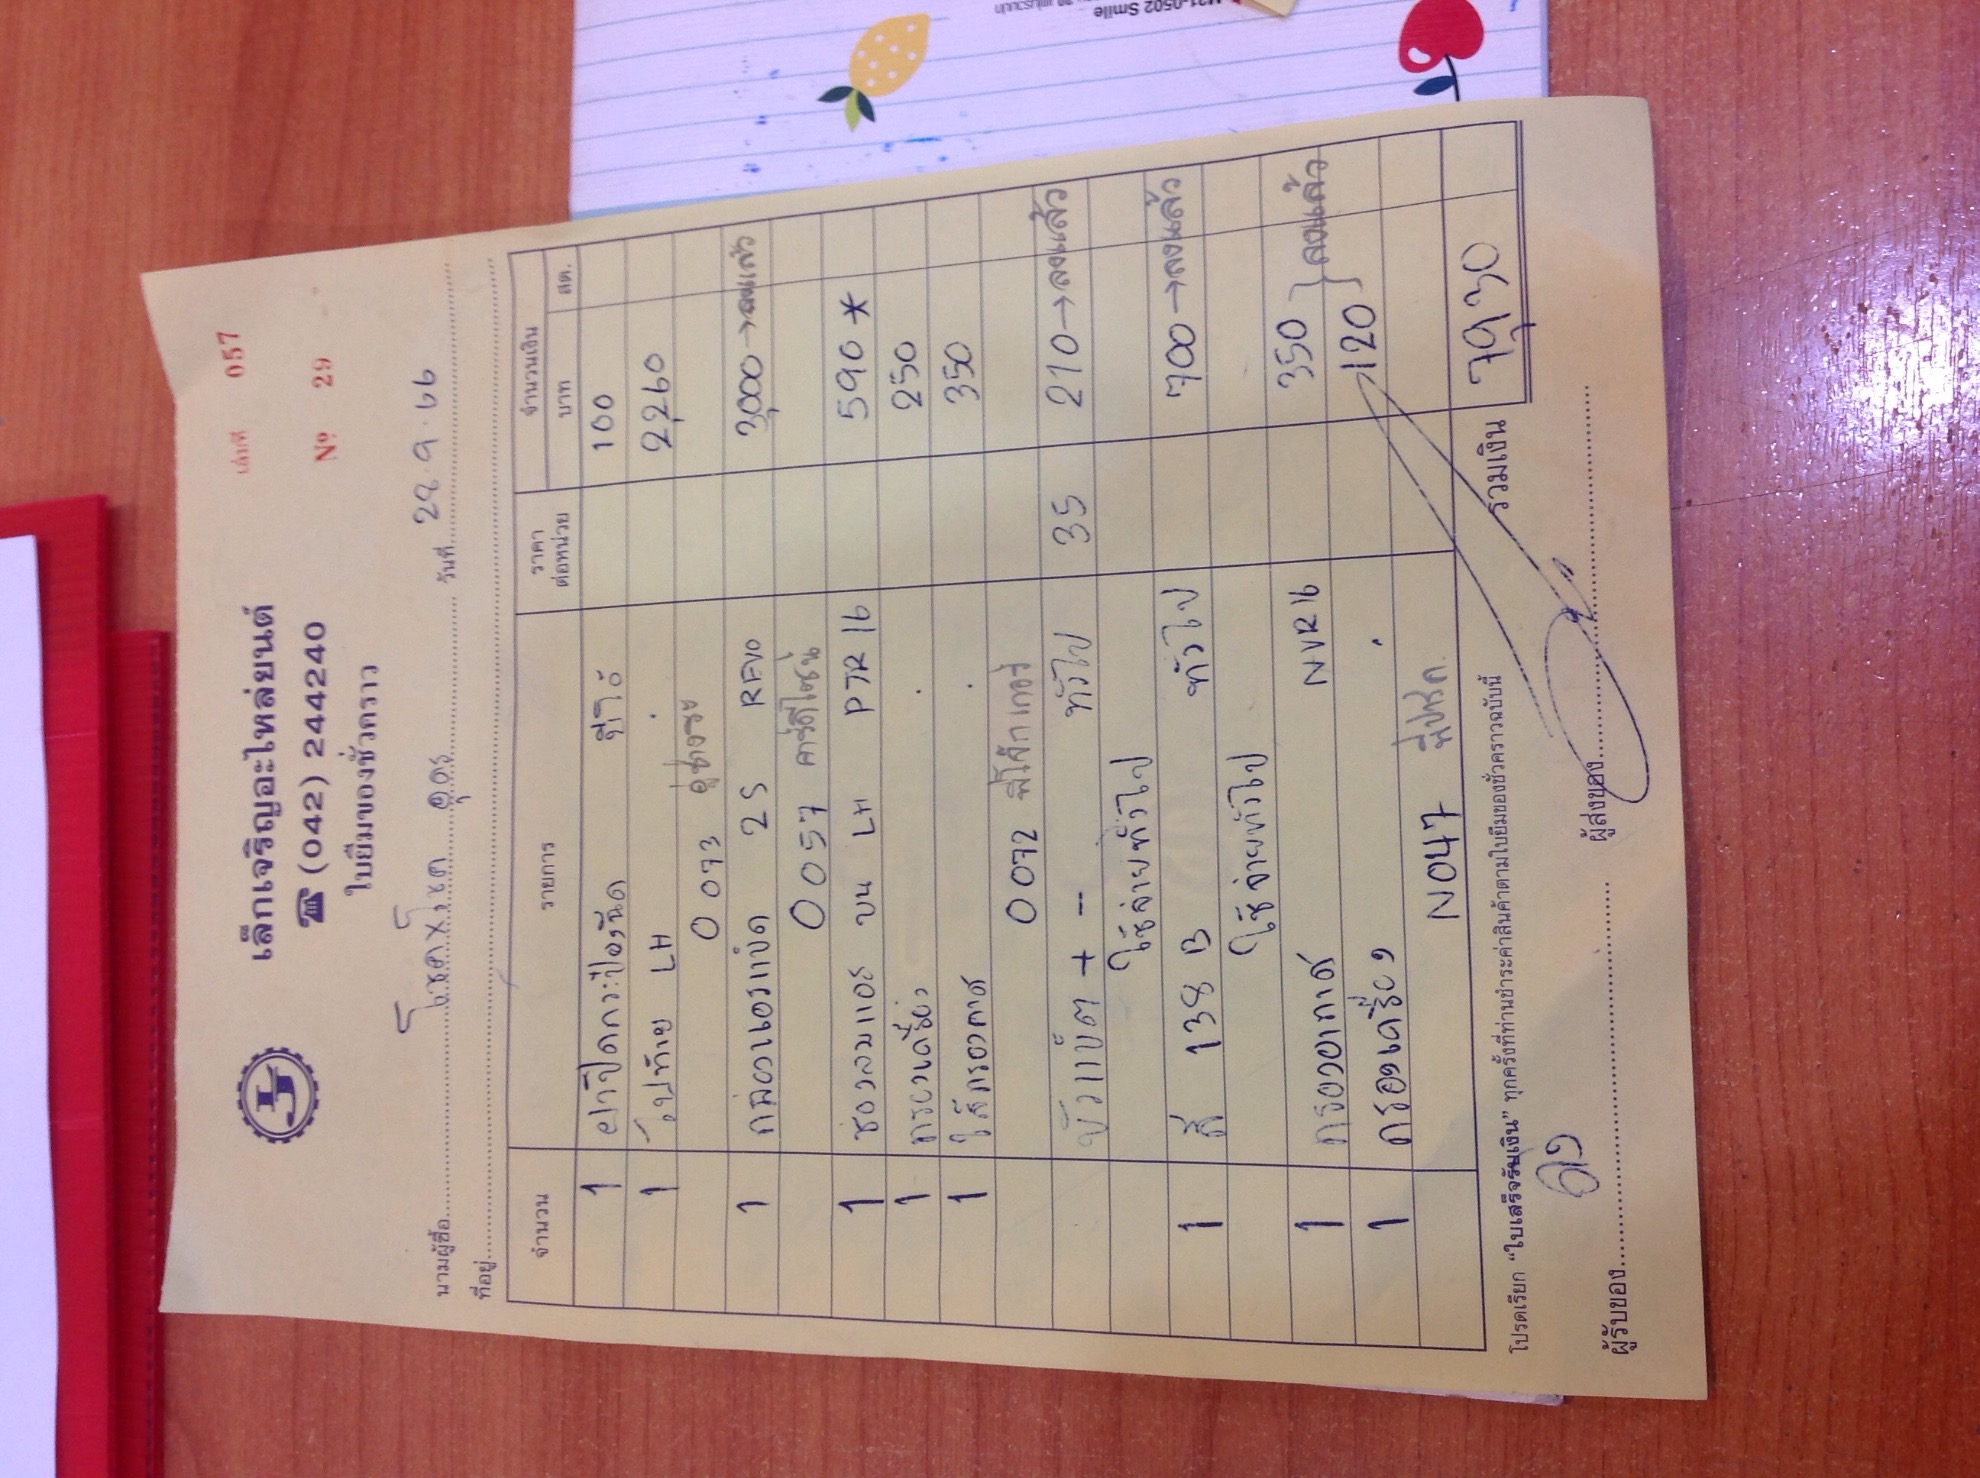 เล่มที่ 057
เล็กเจริญอะไหล่ยนต์
☎ (042) 244240
№ 29
ใบยืมของชั่วคราว
นามผู้ซื้อ โชคชัย อุดร วันที่ 29.9.66
ที่อยู่
จำนวน รายการ ราคาต่อหน่วย จำนวนเงิน
บาท สต.
1 ฝาปิดกระป๋องฉีด 100
1 LH 2,260
0073
1 กล่องแอร์แบ็ค 2S REVO 3,000 → ลงแล้ว
0057
1 LH PTR 16 590 *
1 กรองเครื่อง 250
1 ไส้กรองอากาศ 350
0072
ขั้วแบ็ต + -- ทั่วไป 35 210 → ลงแล้ว
ใช้จ่ายทั่วไป
1 สี 138 B ทั่วไป 700 → ลงแล้ว
ใช้จ่ายทั่วไป
1 กรองอากาศ NVR16 350 } ลงแล้ว
1 กรองเครื่อง 120
N047
รวมเงิน 7,930
โปรดเรียก "ใบเสร็จรับเงิน" ทุกครั้งที่ท่านชำระค่าสินค้าตามใบยืมของชั่วคราวฉบับนี้
ผู้รับของ ผู้ส่งของ
M21-0502 Smile